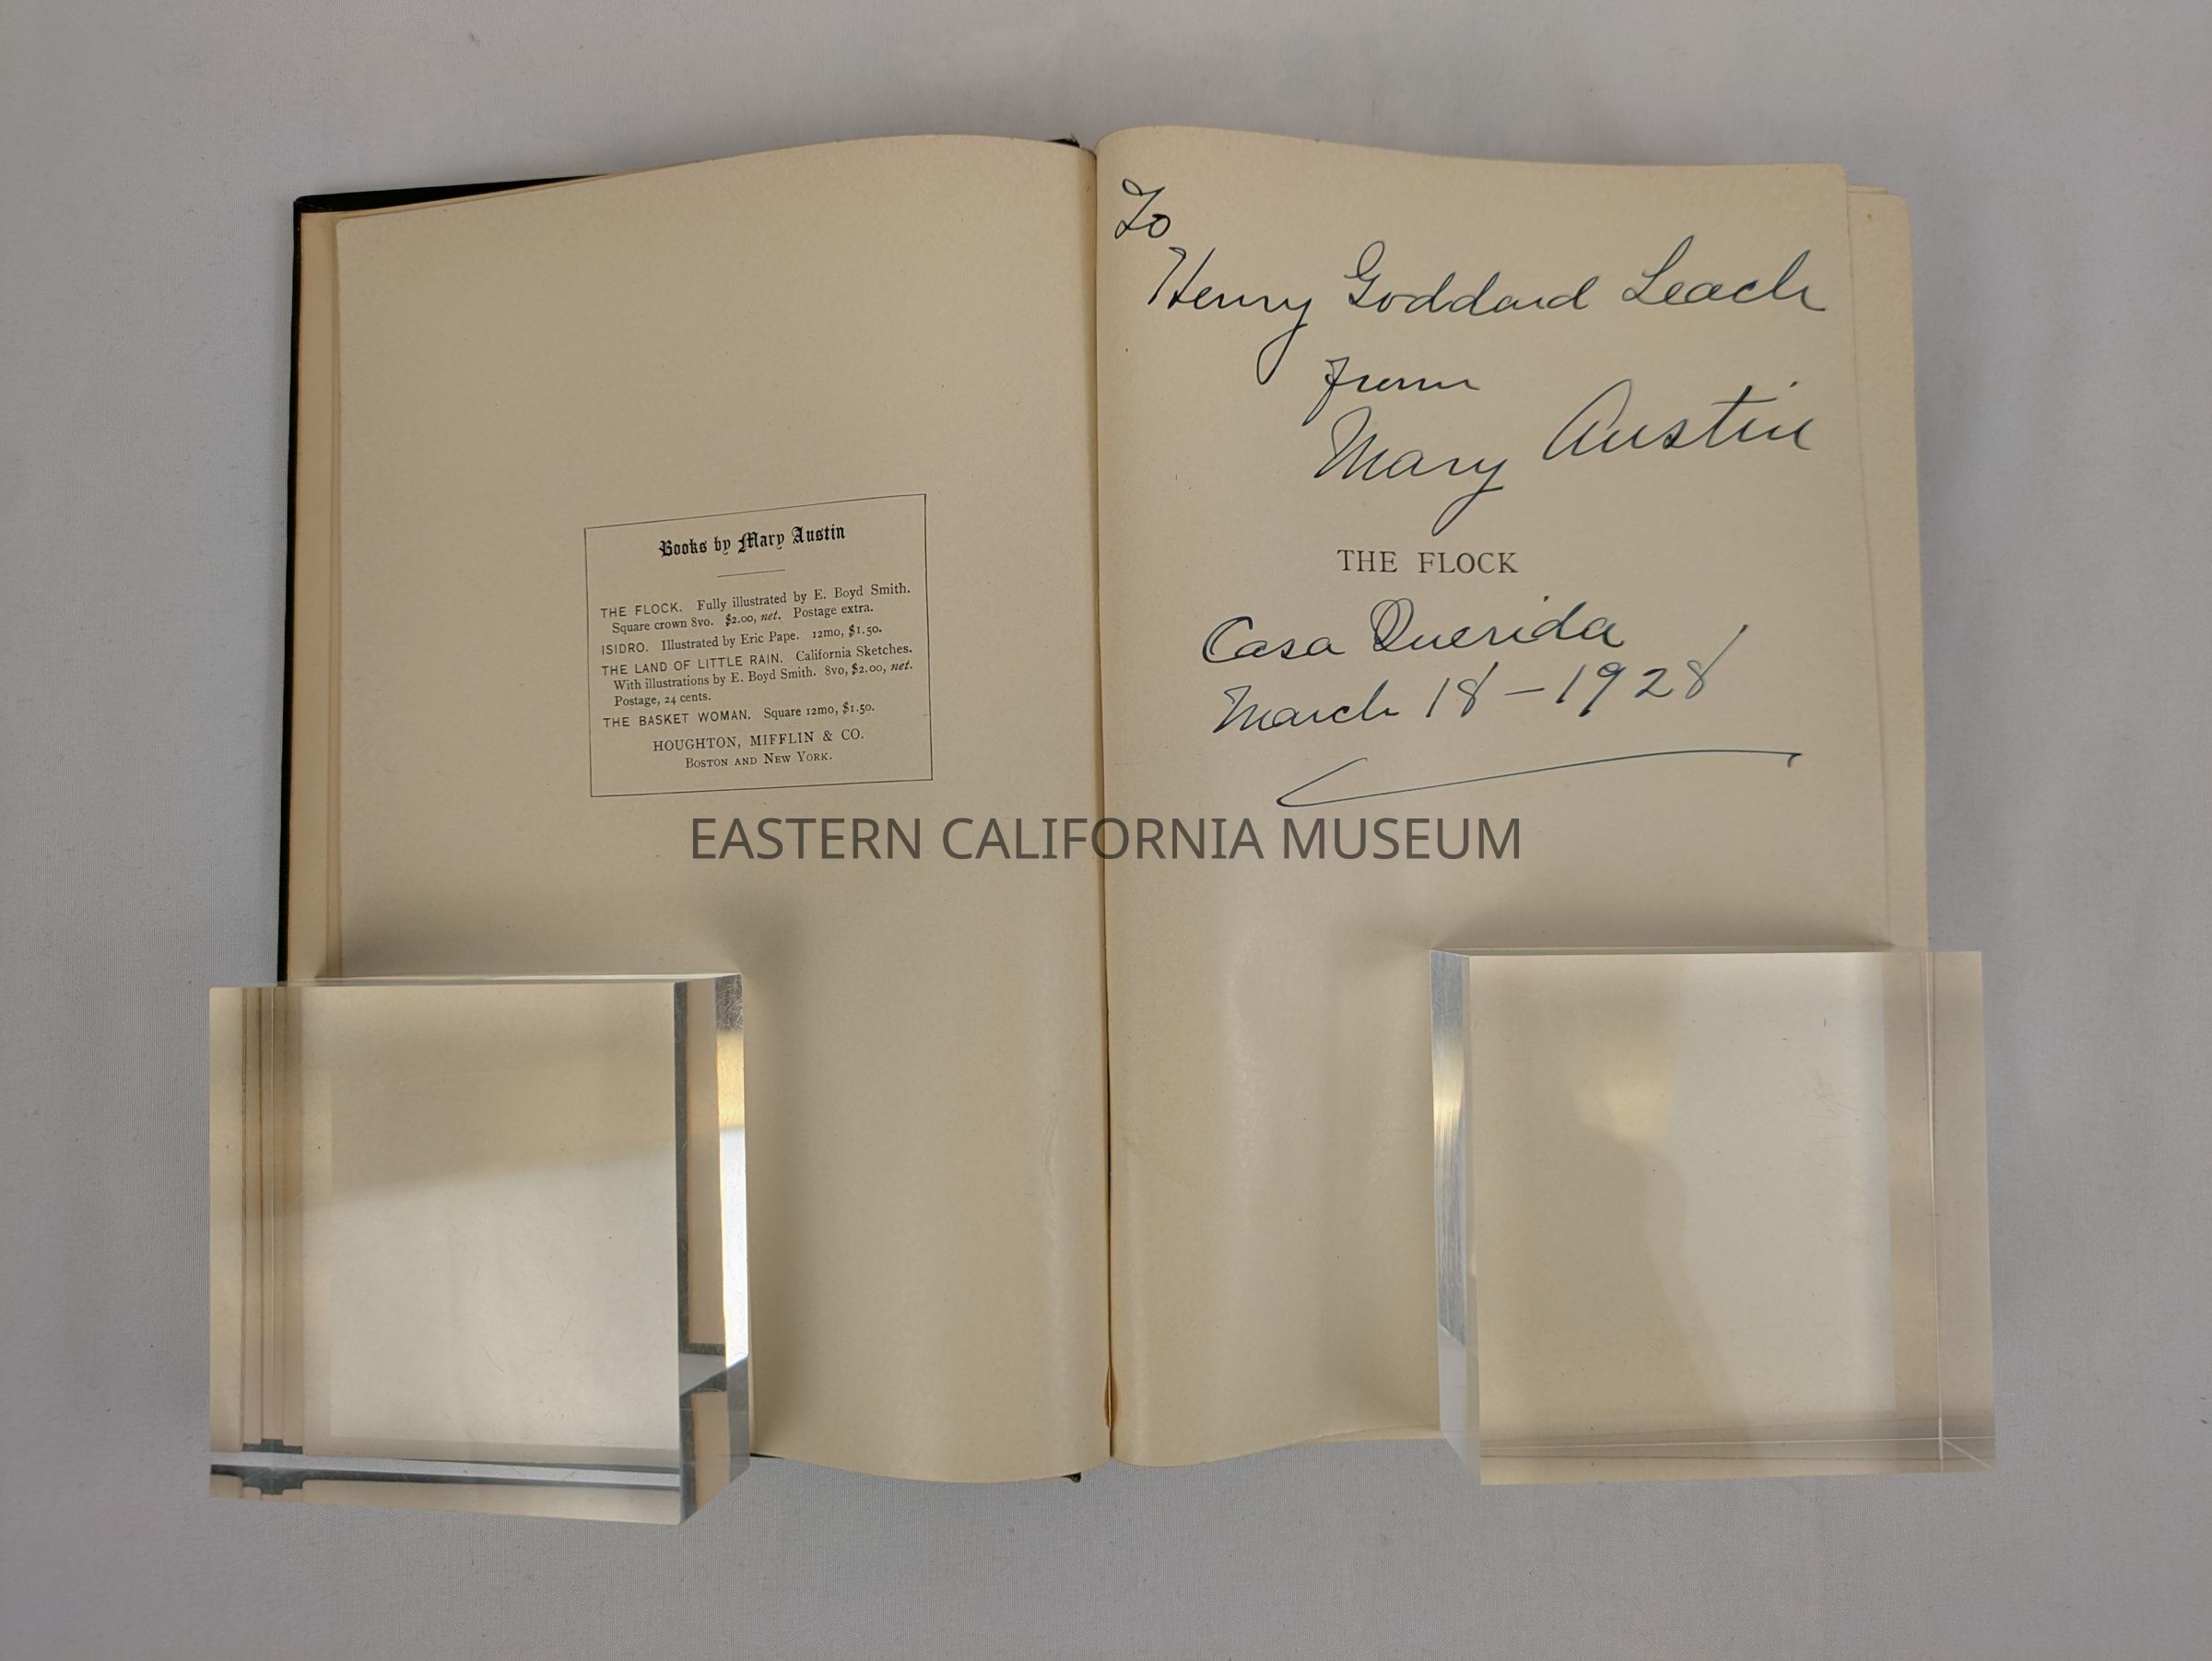 Books by Mary Austin
THE FLOCK. Fully illustrated by E. Boyd Smith.
Square crown 8vo. $2.00, net. Postage extra.
ISIDRO. Illustrated by Eric Pape. 12mo, $1.50.
THE LAND OF LITTLE RAIN. California Sketches.
With illustrations by E. Boyd Smith. 8vo, $2.00, net.
Postage, 24 cents.
THE BASKET WOMAN. Square 12mo, $1.50.
HOUGHTON, MIFFLIN & CO.
BOSTON AND NEW YORK.
To
Henry Goddard Leach
from
Mary Austin
THE FLOCK
Casa Querida
March 18 – 1928
EASTERN CALIFORNIA MUSEUM